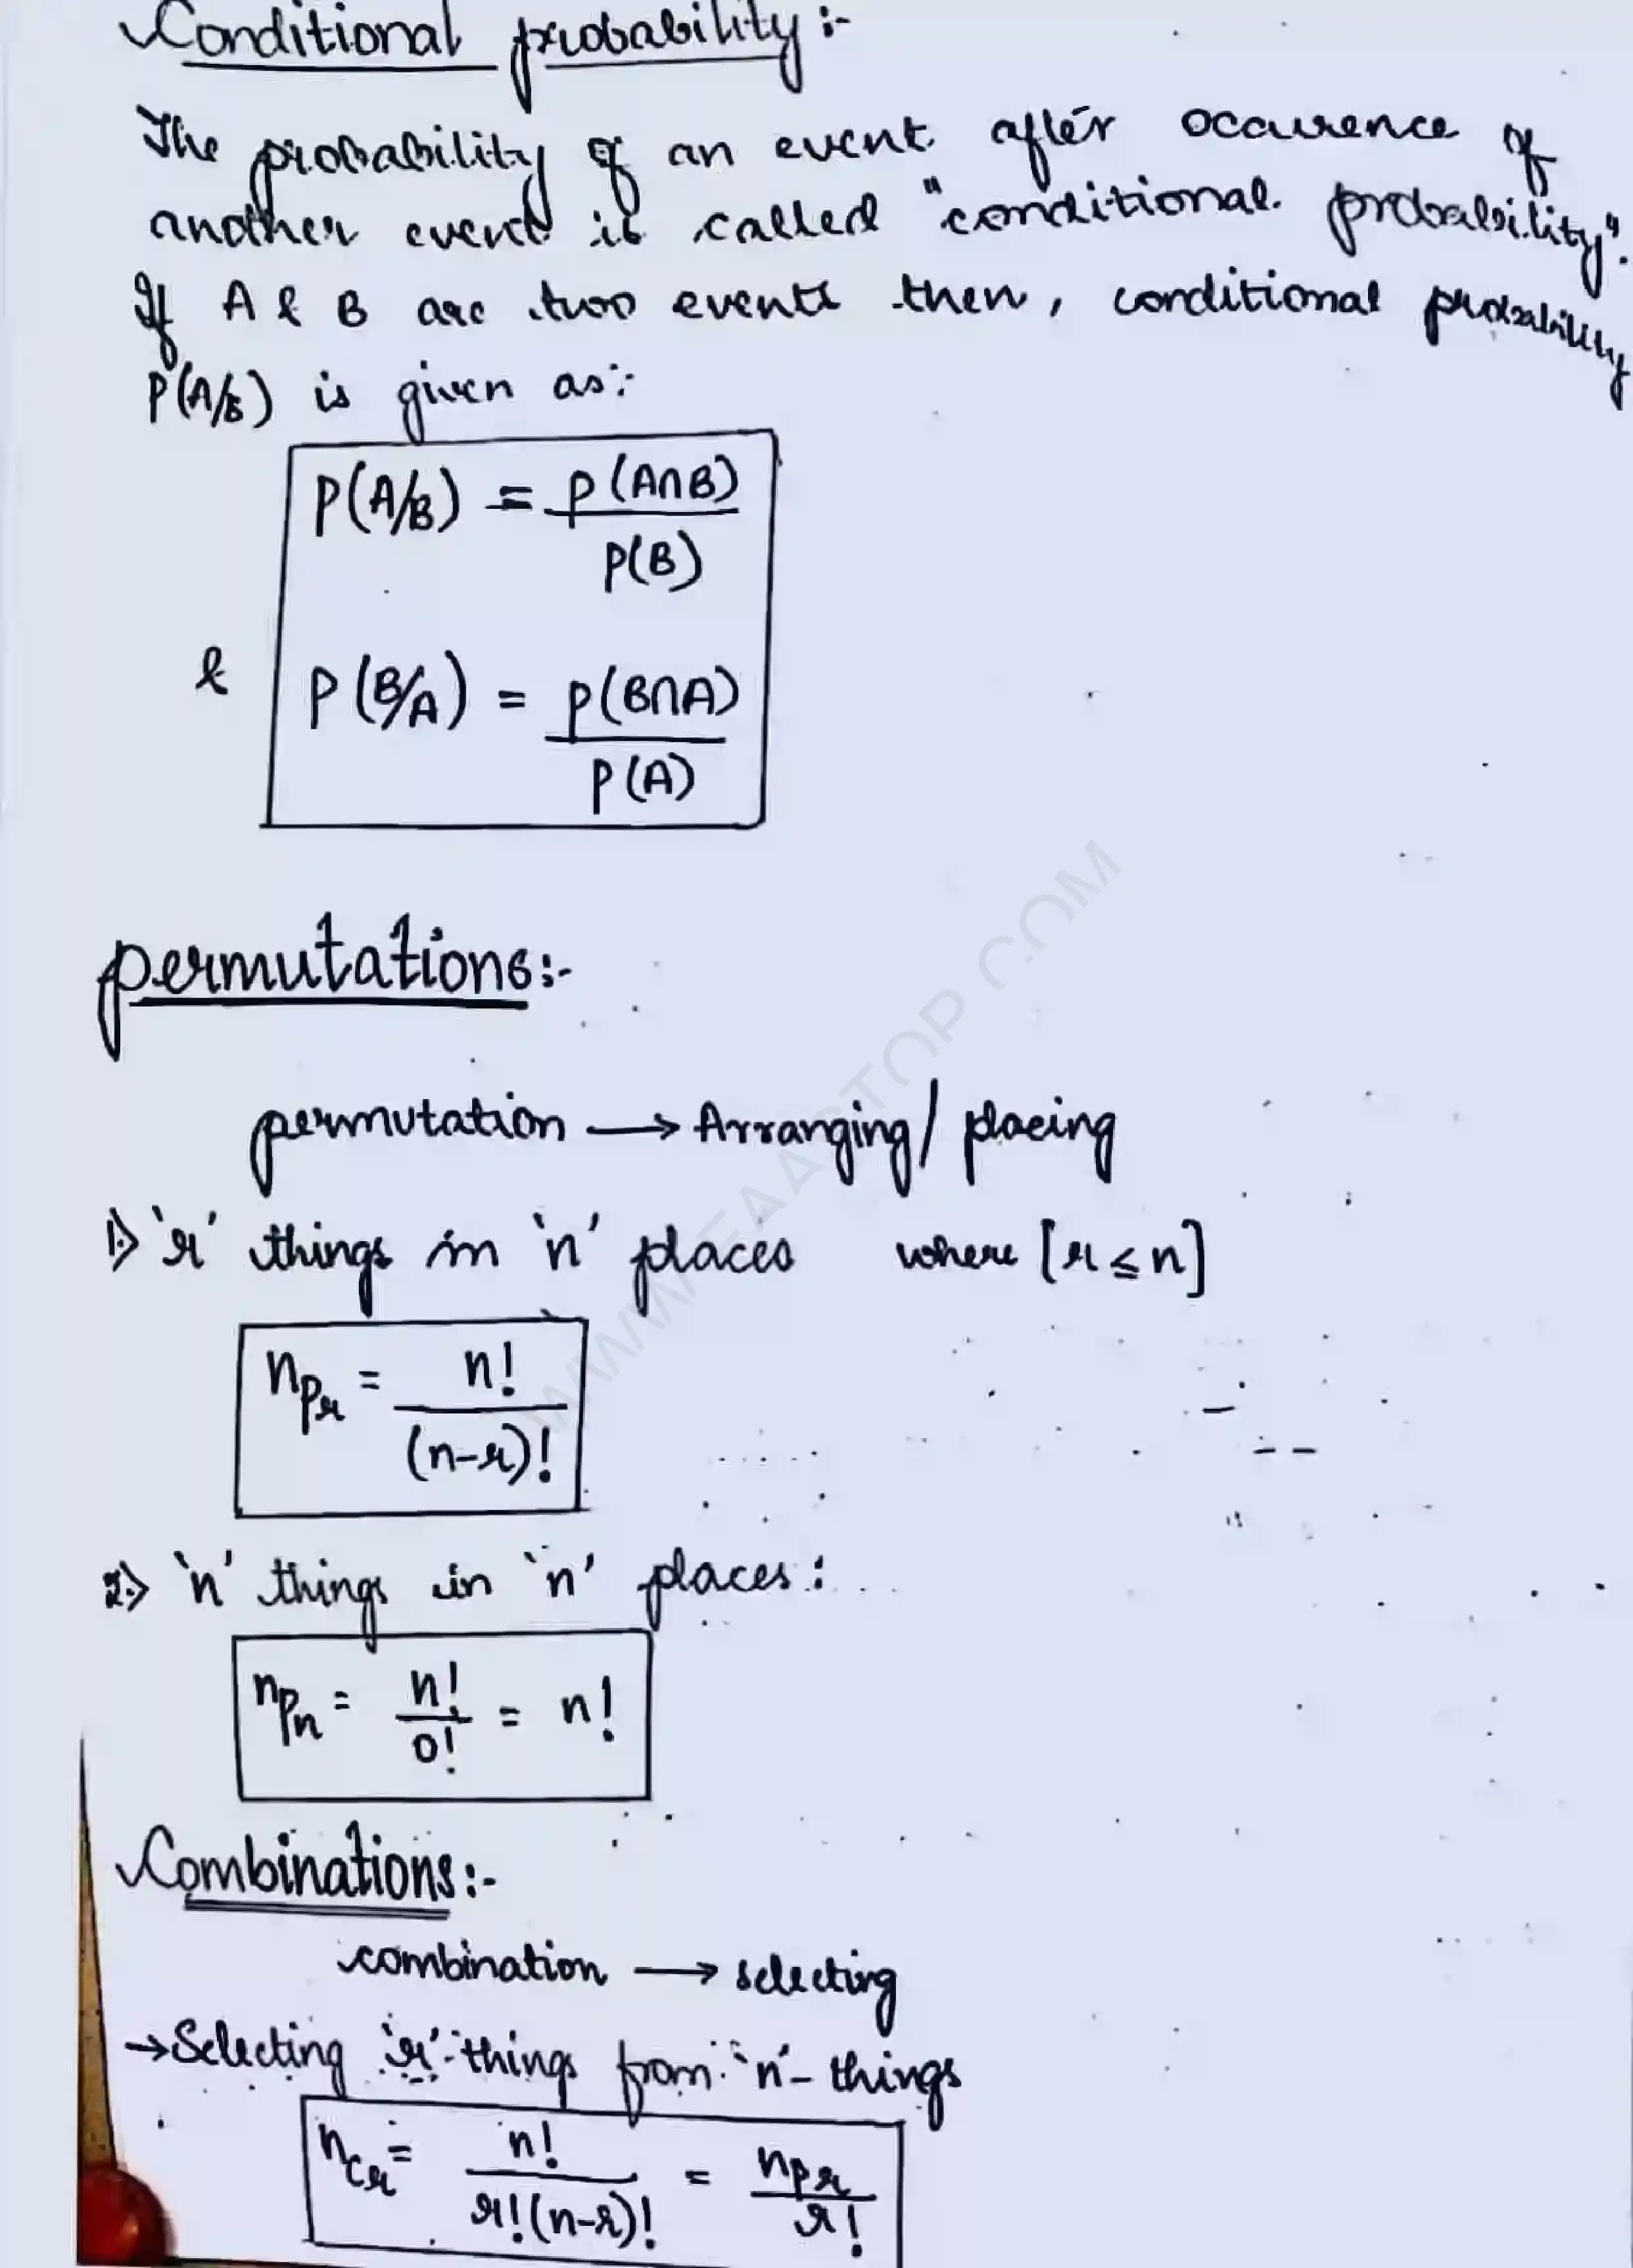 Conditional probability:-
The probability of an event after occurence of
another event is called "conditional probability".
If A & B are two events then, conditional probability
P(A/B) is given as:
P(A/B) = P(A∩B)
P(B)
& P(B/A) = P(B∩A)
P(A)
permutations:-
permutation → Arranging/placing
1) 'r' things in 'n' places where [r ≤ n]
nPr = n!
(n-r)!
2) 'n' things in 'n' places:
nPn = n!/0! = n!
Combinations:-
combination → selecting
→ Selecting 'r'-things from 'n'-things
nCr = n!/r!(n-r)! = nPr/r!